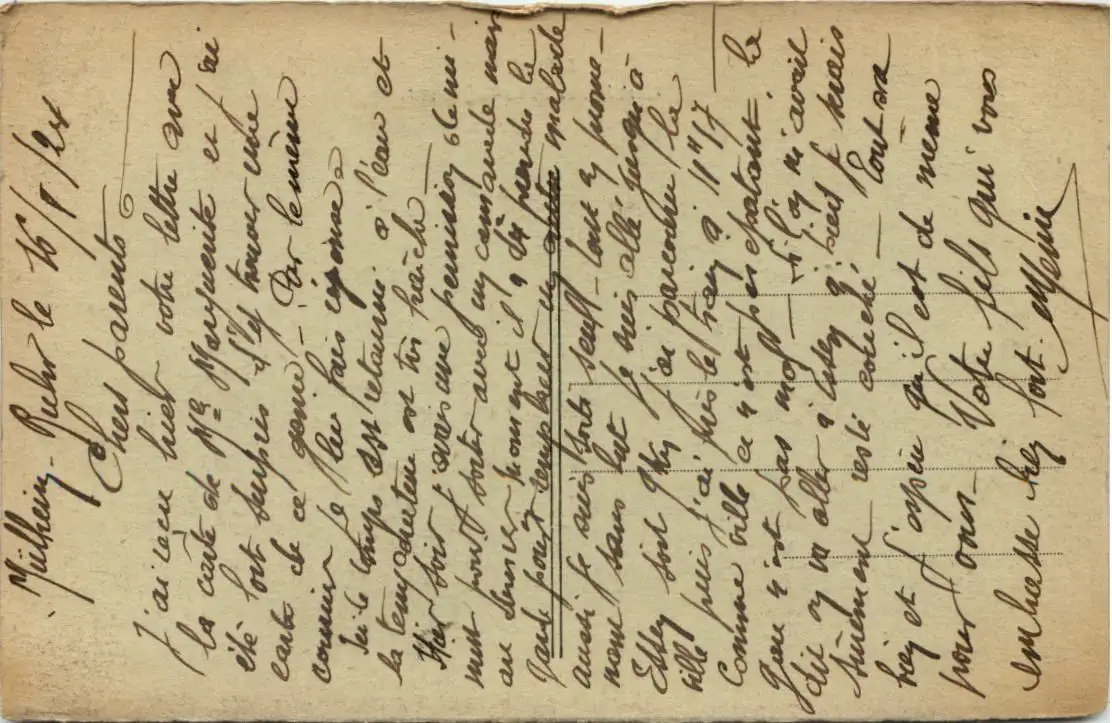 Mülheim-Ruhr le 16/8/24
Chers parents
J'ai reçu hier votre lettre avec
la carte de Mlle Marguerite et j'ai
été tout surpris d'y trouver une
carte de ce genre - Par le même
courrier je lui fais réponse.
Ici le temps est retourné à l'eau et
la température est très fraîche
Hier soir j'avais une permission de mi-
nuit pour sortir avec un camarade mais
au dernier moment il a dû prendre la
garde pour remplacer un autre malade
aussi je suis sorti seul - tout en prome-
nant sans but je suis allé jusqu'à
Essen soit j'ai parcouru la
ville puis j'ai pris le train à
Comme ville ce n'est pas épatant. la
gare n'est pas mal - si l'on m'avait
dit on va aller à mes pieds mais
sûrement resté couché - Tout va
bien et j'espère qu'il est de même
pour vous - Votre fils qui vous
embrasse bien fort.